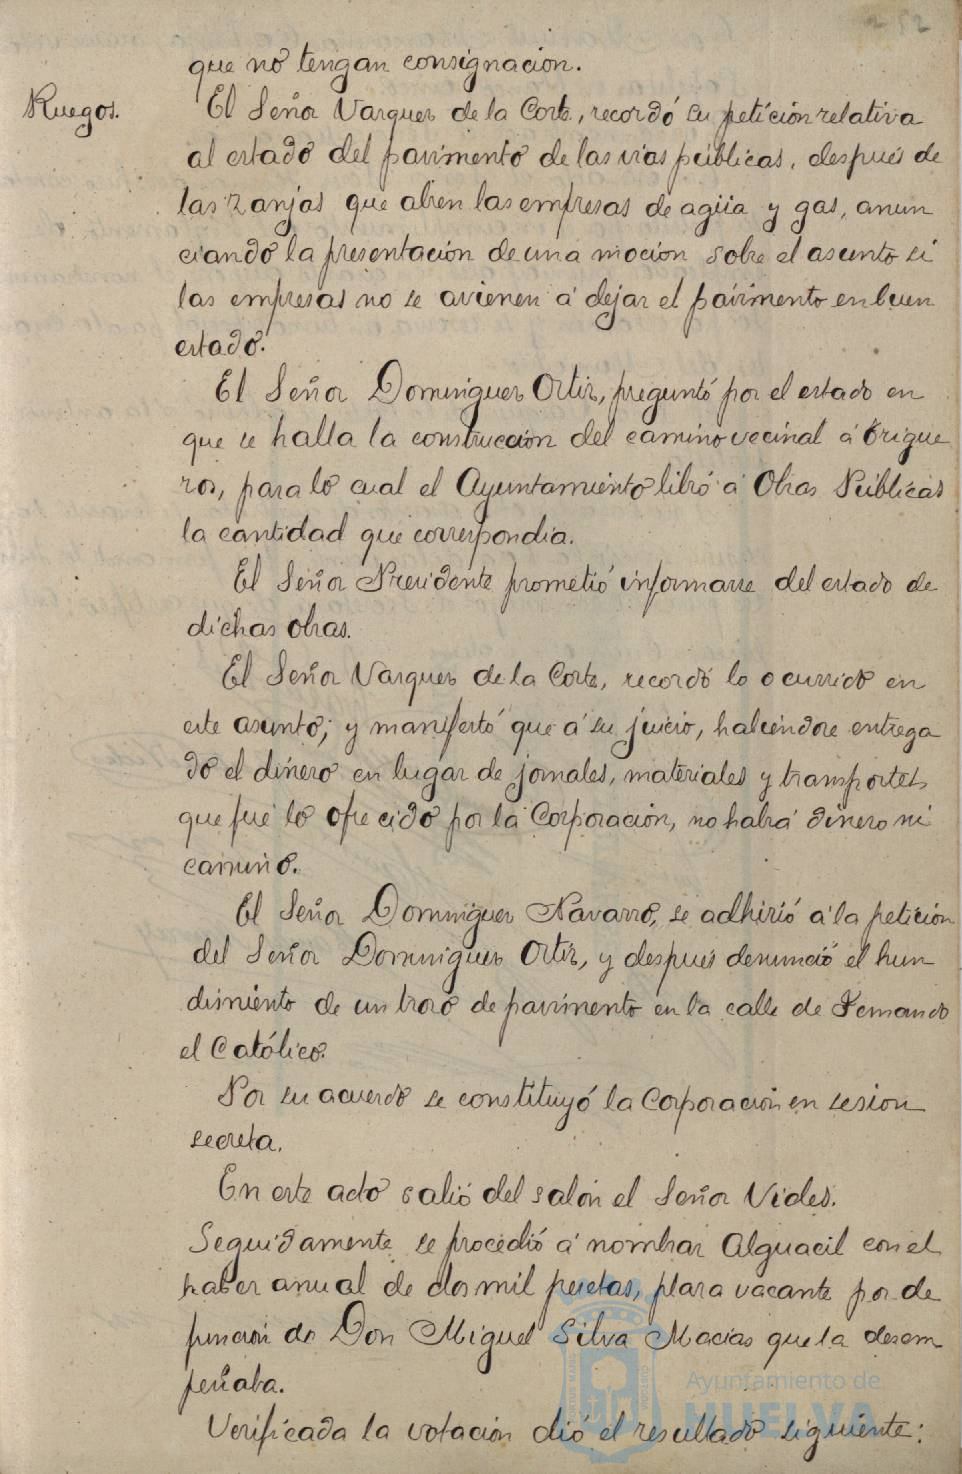 252
que no tengan consignacion.
Ruegos.
El Señor Vazquez de la Corte, recordó su petición relativa
al estado del pavimento de las vias públicas, después de
las zanjas que abren las empresas de agua y gas, anun
ciando la presentación de una moción sobre el asunto si
las empresas no se avienen á dejar el pavimento en buen
estado.
El Señor Dominguez Ortiz, preguntó por el estado en
que se halla la construcción del camino vecinal á Trigue
ros, para lo cual el Ayuntamiento libró á Obras Públicas
la cantidad que correspondia.
El Señor Presidente prometió informarse del estado de
dichas obras.
El Señor Vazquez de la Corte, recordó lo ocurrido en
este asunto; y manifestó que á su juicio, habiendose entrega
do el dinero en lugar de jornales, materiales y transportes
que fué lo ofrecido por la Corporación, no habrá dinero ni
camino.
El Señor Dominguez Navarro, se adhirió á la petición
del Señor Dominguez Ortiz, y después denunció el hun
dimiento de un trozo de pavimento en la calle de Fernando
el Católico.
Por su acuerdo se constituyó la Corporación en sesion
secreta.
En este acto salió del salón el Señor Vides.
Seguidamente se procedió á nombrar Alguacil con el
haber anual de dos mil pesetas, plaza vacante por de
función de Don Miguel Silva Macias que la desem
peñaba.
Verificada la votación dió el resultado siguiente:
Ayuntamiento de
HUELVA